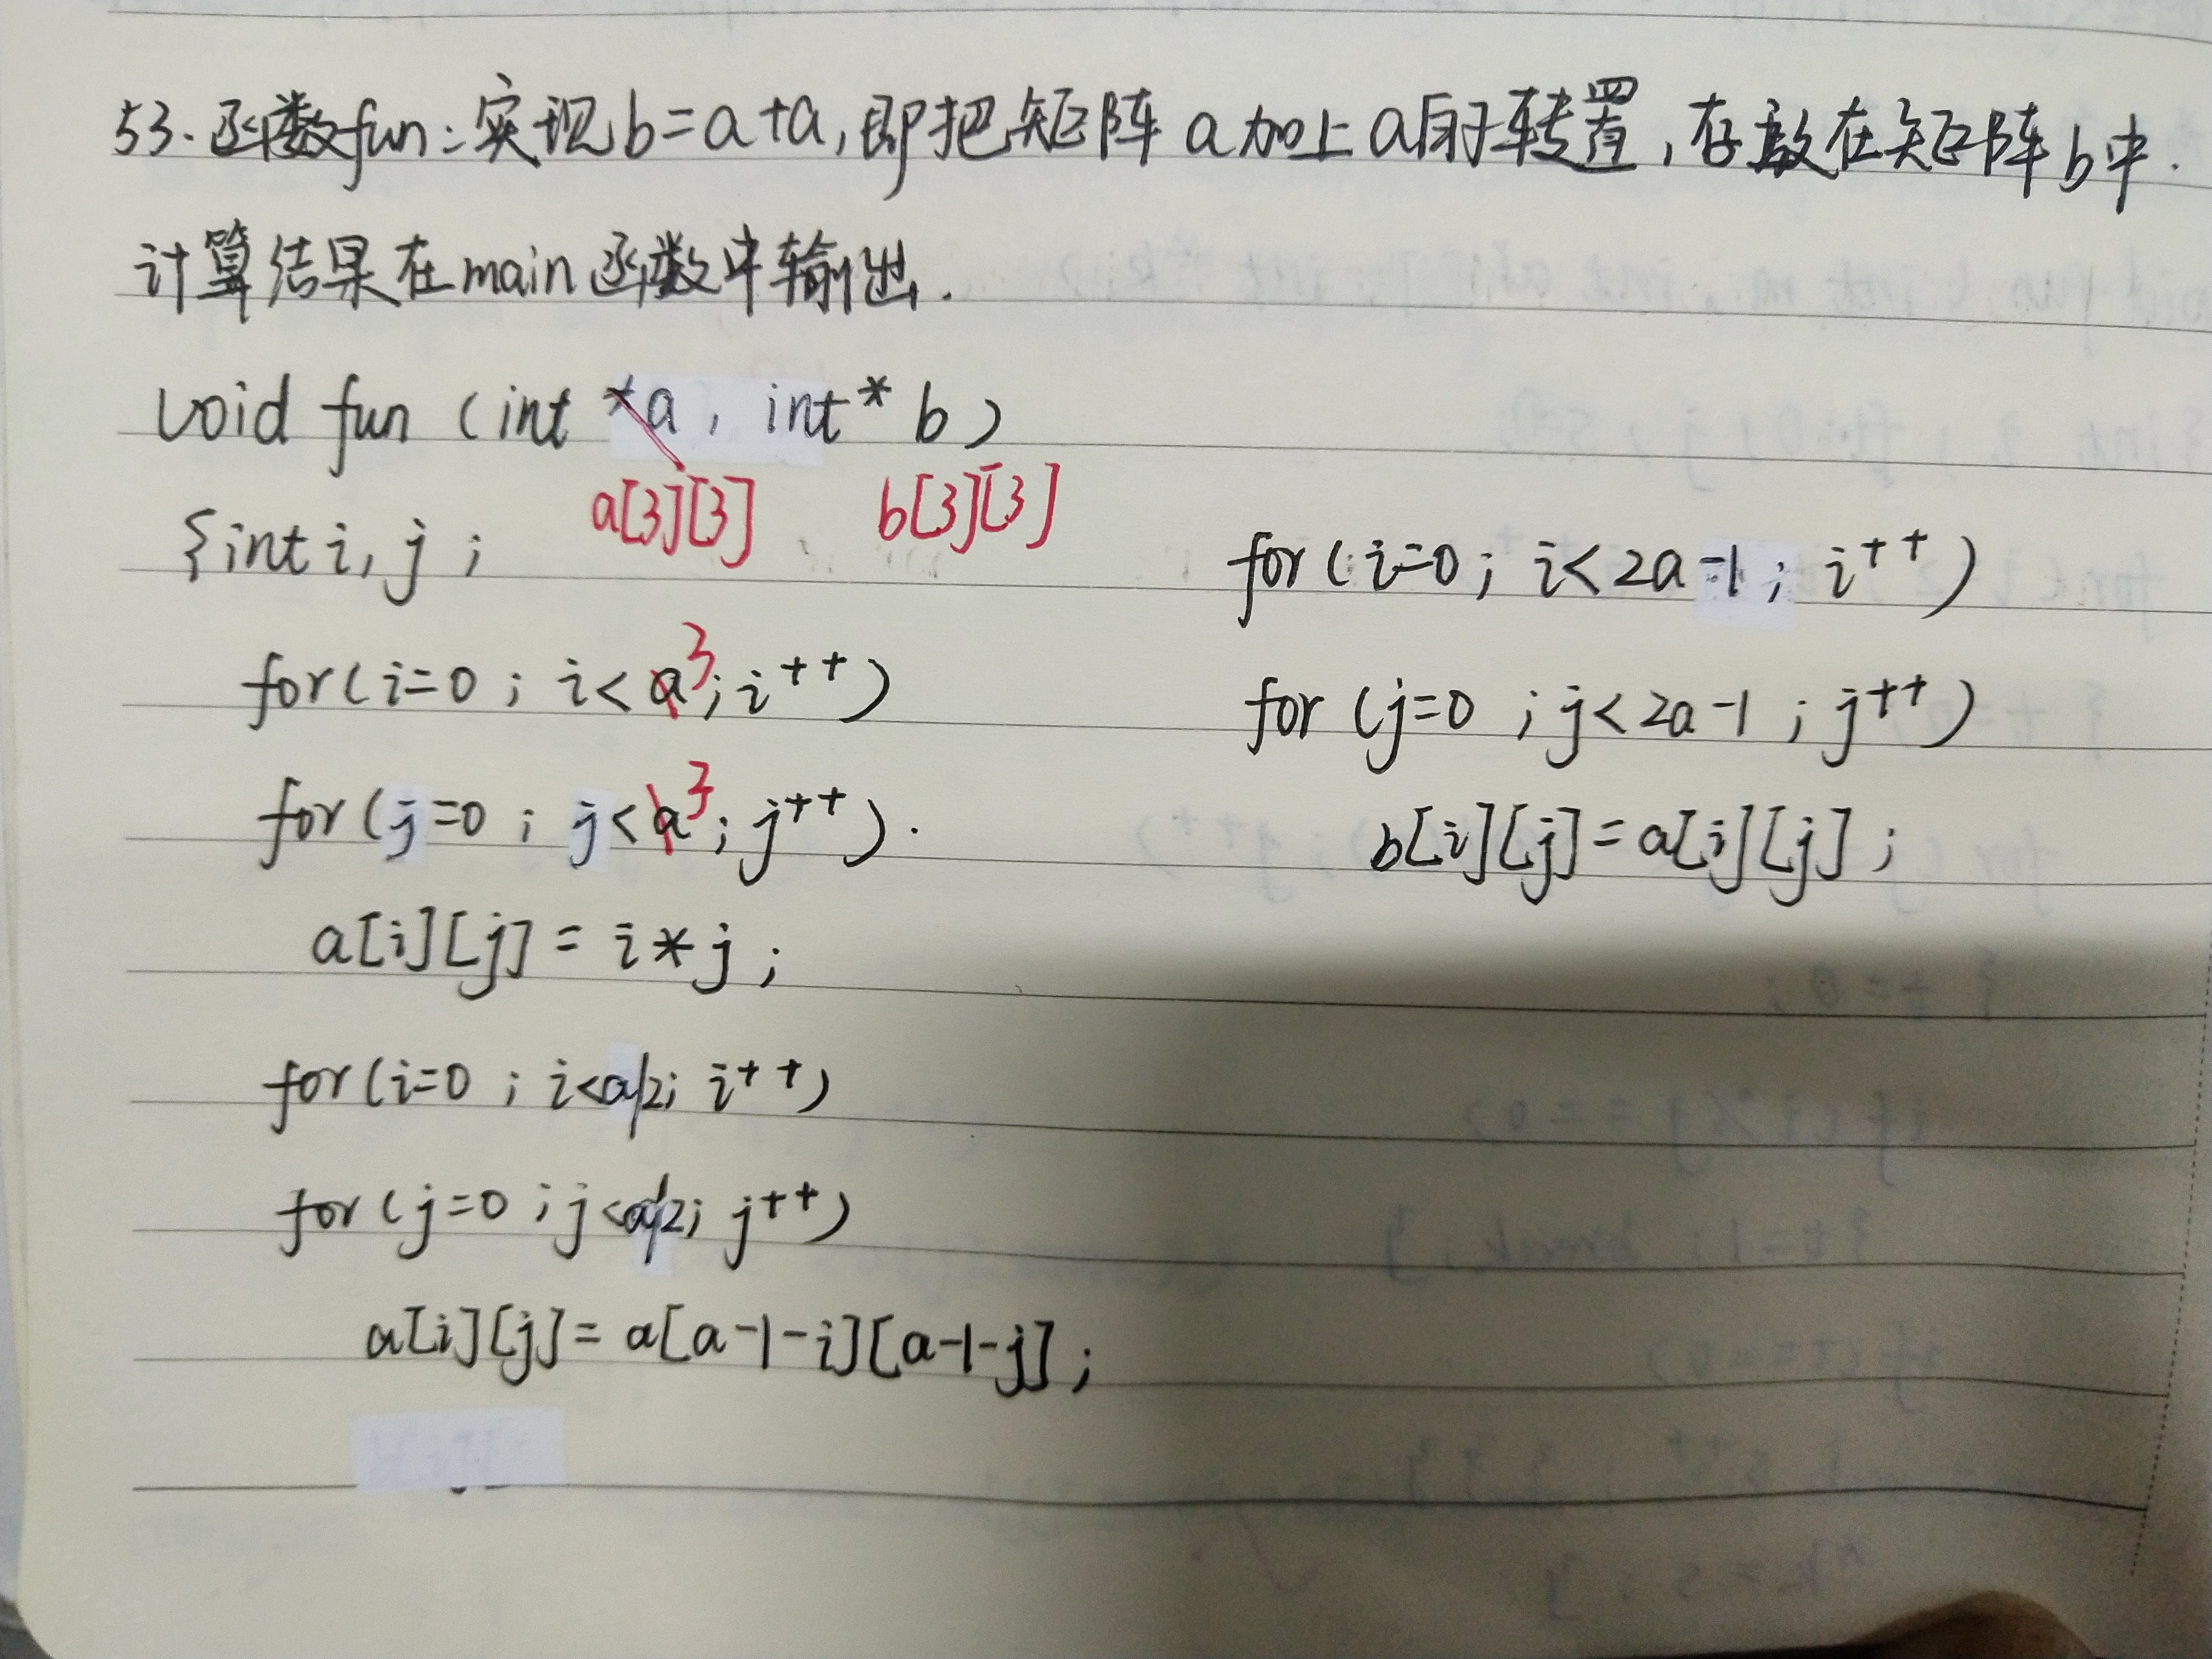 53.函数fun:实现b=a+a,即把矩阵a加上a的转置,存放在矩阵b中.
计算结果在main函数中输出.
void fun (int *a, int* b)
a[3][3] b[3][3]
{int i, j;
for(i=0; i<a3; i++)
for(j=0; j<a3; j++).
a[i][j] = i*j;
for(i=0; i<a/2; i++)
for(j=0; j<a/2; j++)
a[i][j]= a[a-1-i][a-1-j];
for(i=0; i<2a-1; i++)
for(j=0; j<2a-1; j++)
b[i][j]=a[i][j];